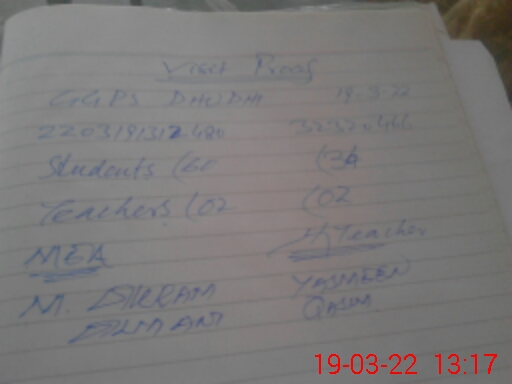 Visit Proof
GGPS DHUDHI 19-3-22
2203191312480 32320466
Students (60 (34
Teachers (02 (02
MEA H/Teacher
M. IKRAM YASMEEN
QASIM
19-03-22 13:17